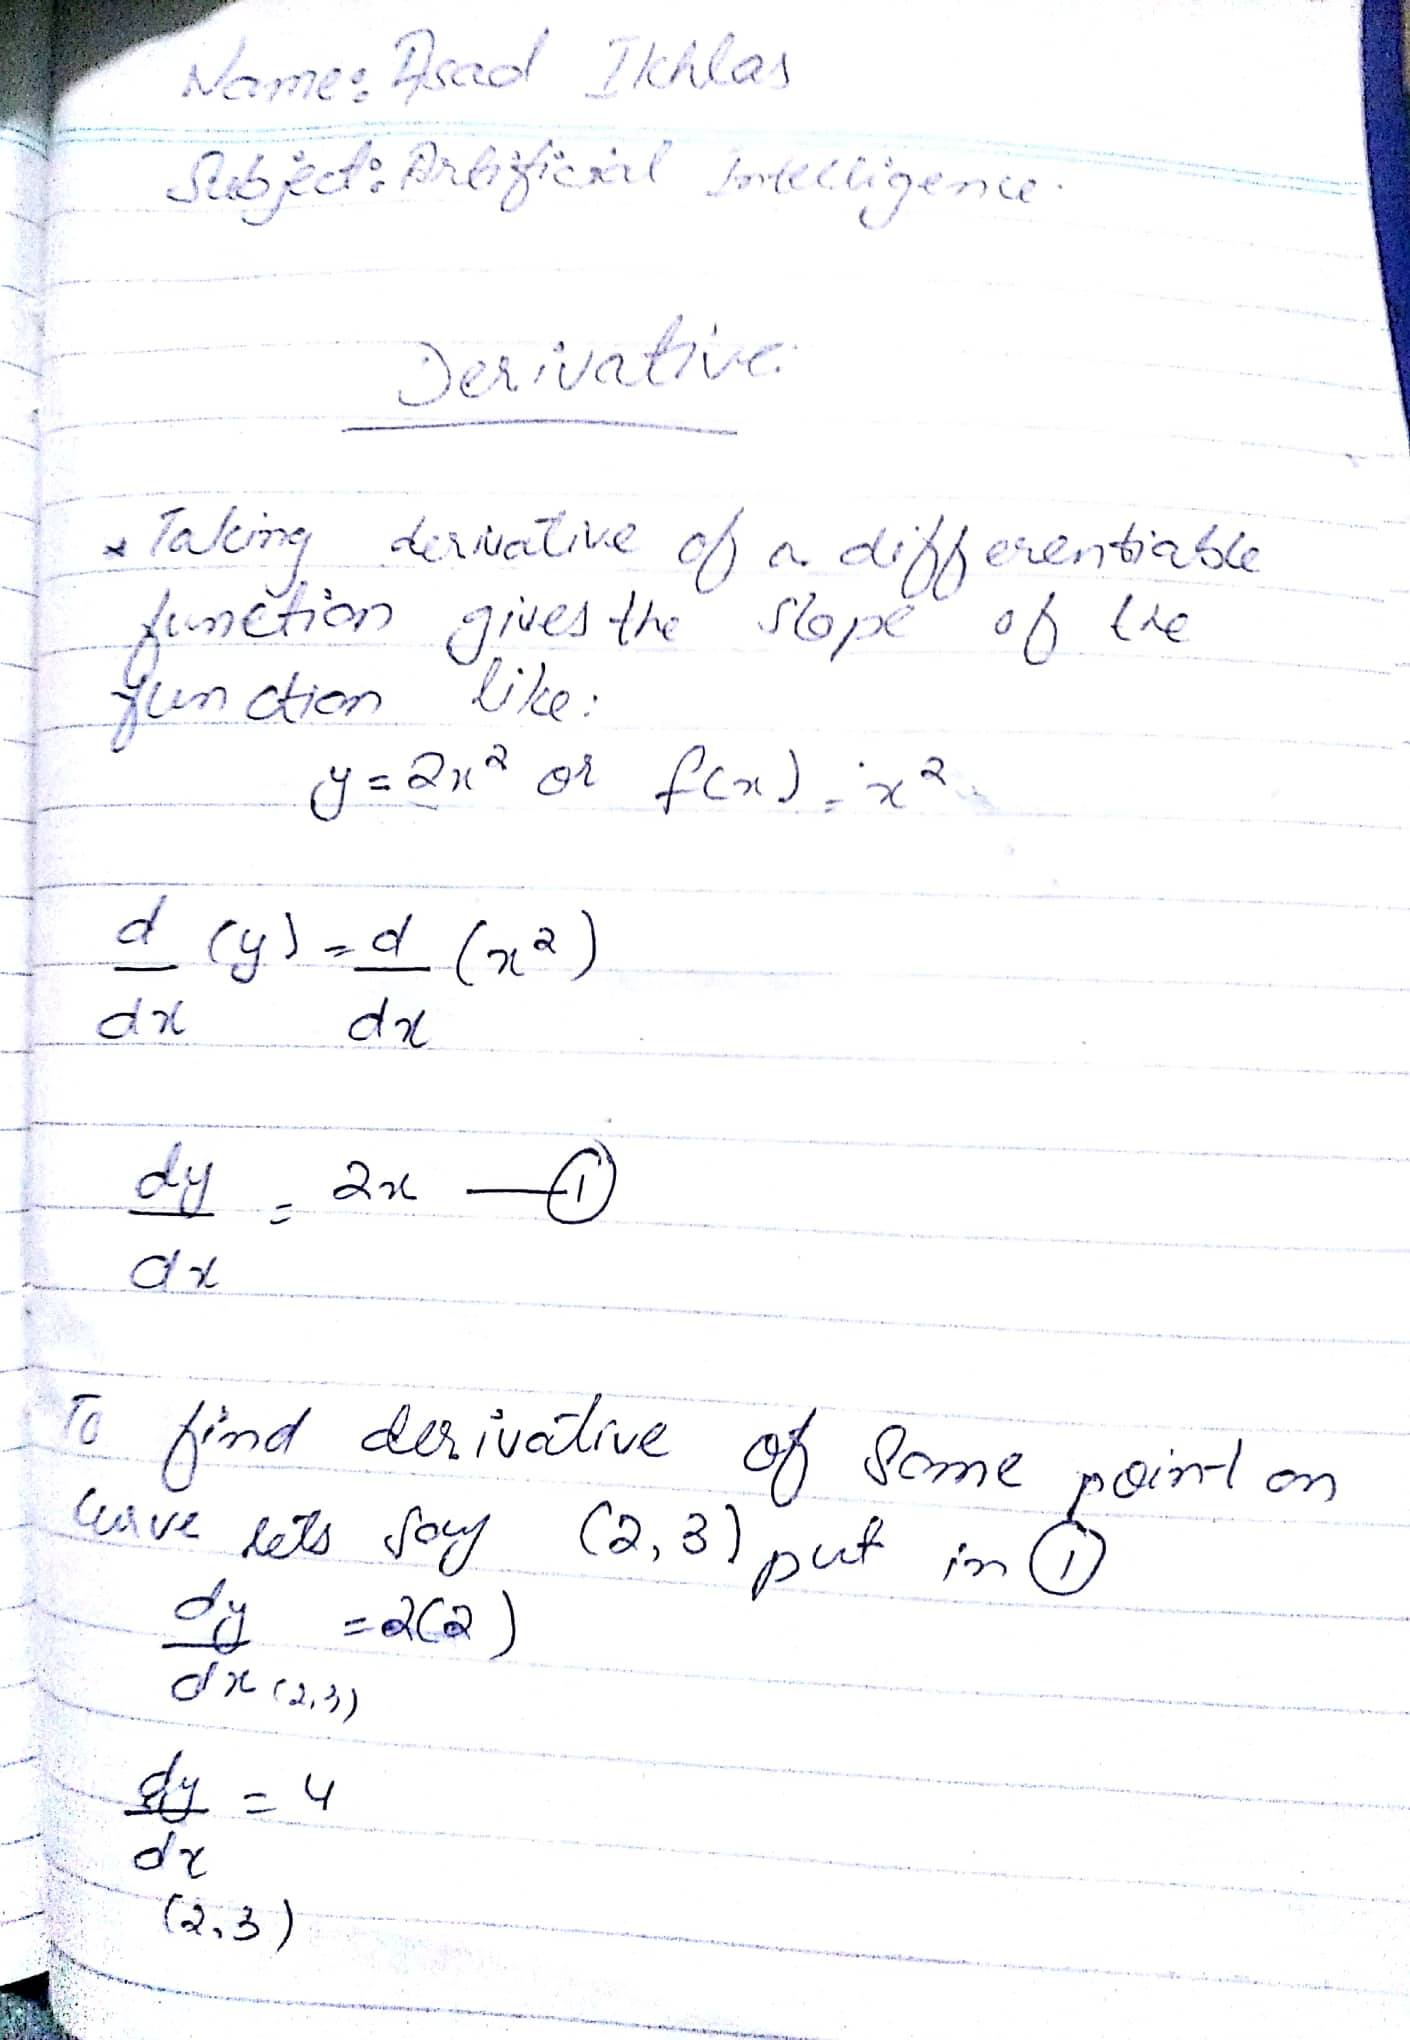 Name: Asad Ikhlas
Subject: Artificial Intelligence.
Derivative:
* Taking derivative of a differentiable
function gives the slope of the
function like:
y = 2x² or f(x) = x²
d/dx (y) = d/dx (x²)
dy/dx = 2x —①
To find derivative of some point on
curve lets say (2,3) put in ①
dy/dx (2,3) = 2(2)
dy/dx = 4
(2,3)